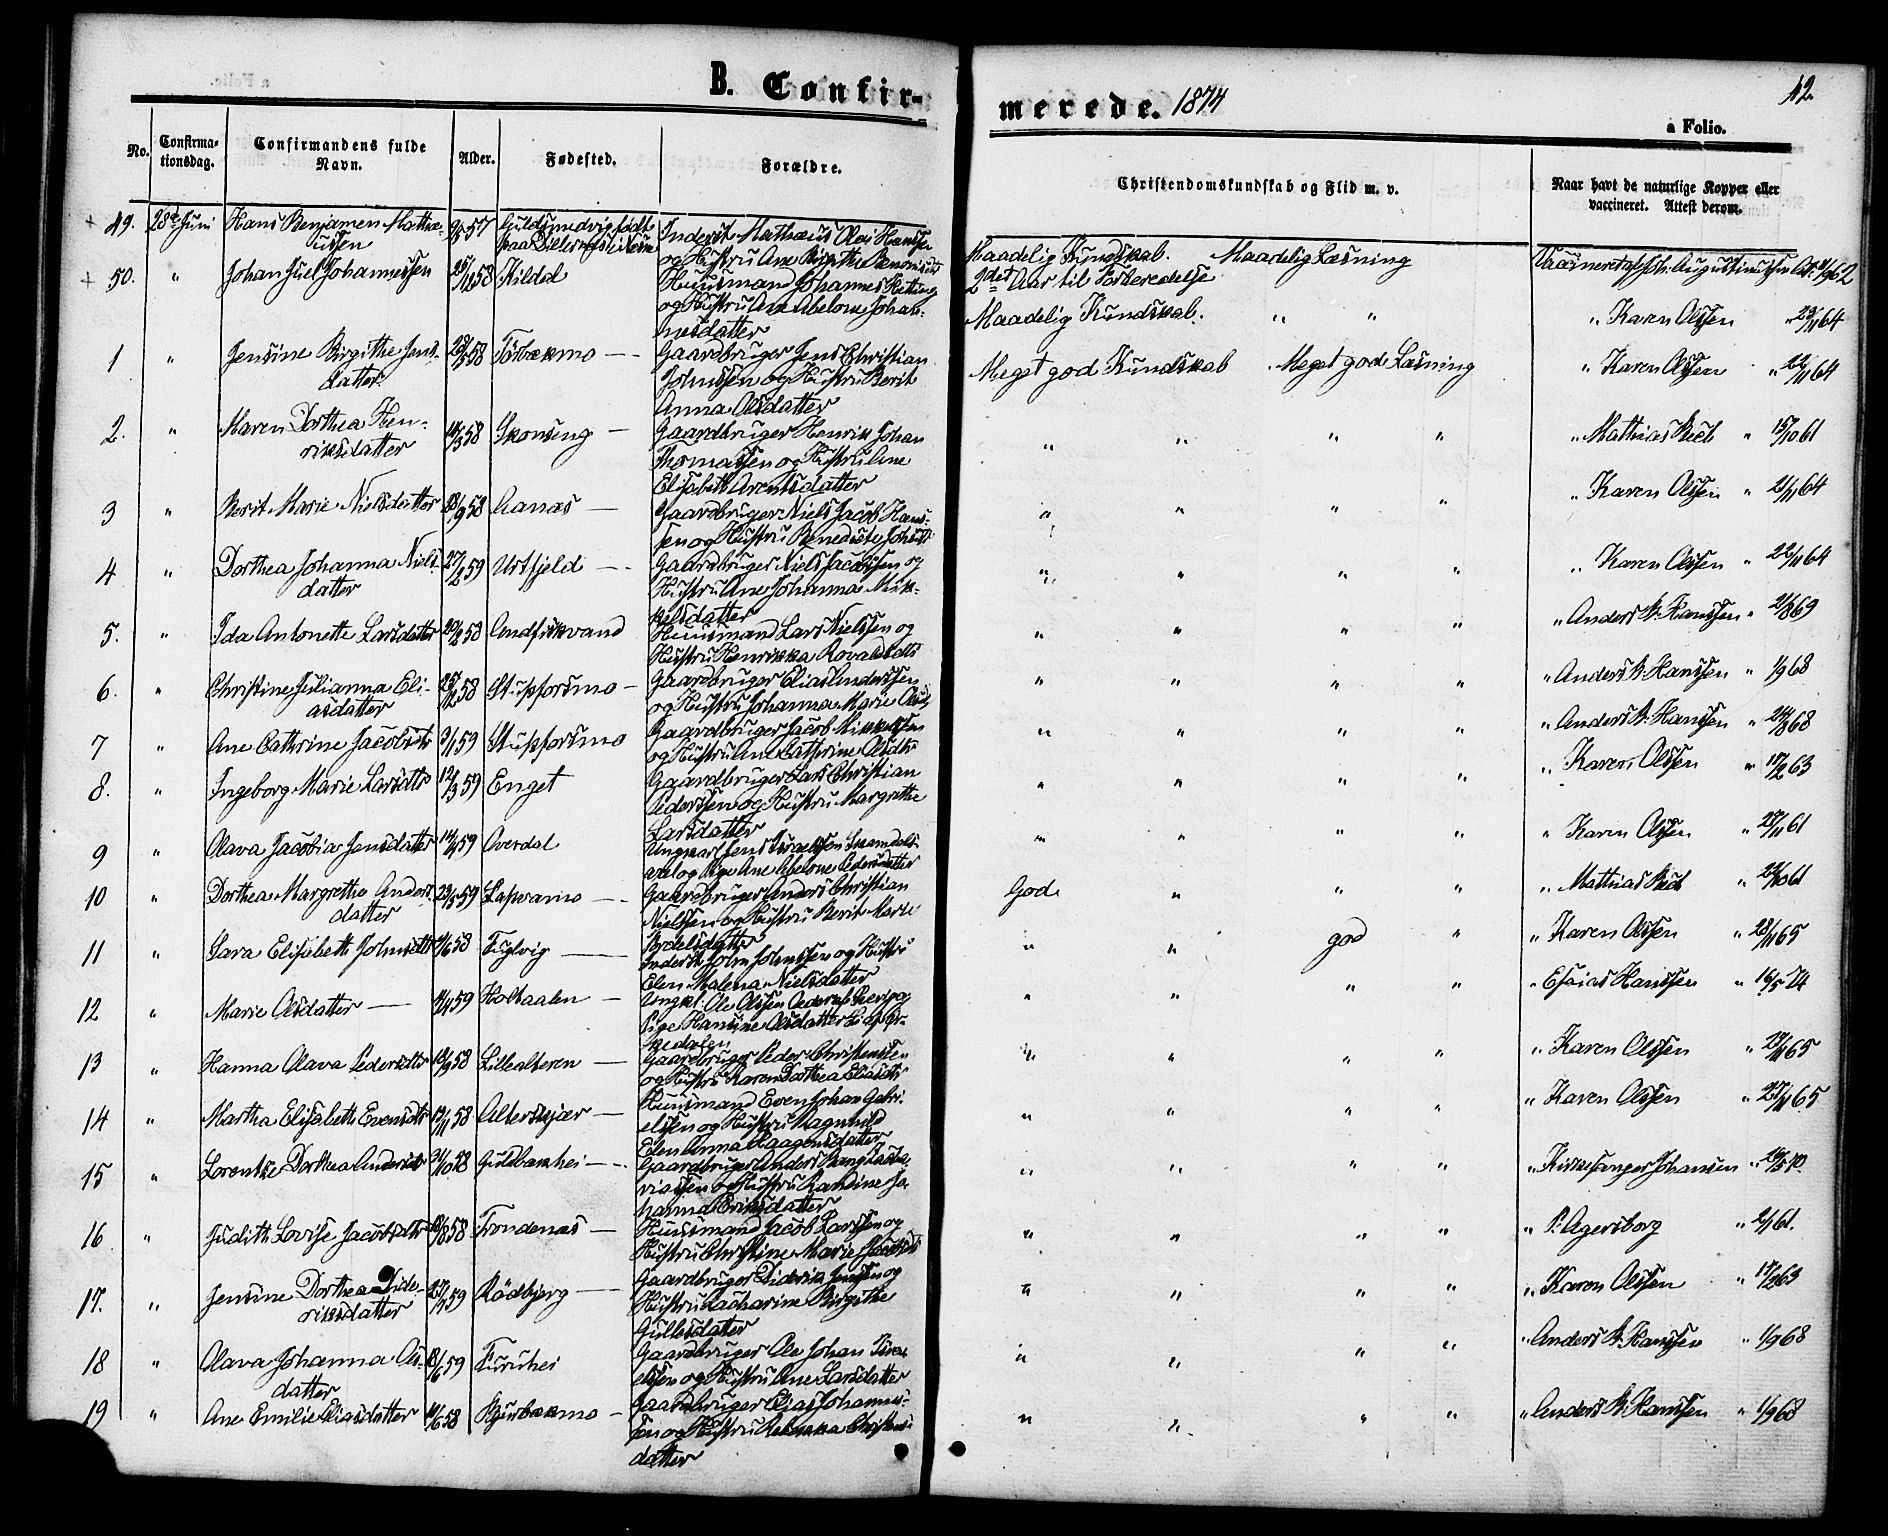 B. Confirmerede. 1874
42.
a Folio.
No. Confirmationsdag. Confirmandens fulde Navn. Alder. Fødested. Forældre. Christendomskundskab og Flid m. v. Naar havt de naturlige Kopper eller vaccineret. Attest derom.
49. 28de Juni Hans Benjamen
Inderst Mathæus Olai Hanssen
og Hustru Ane Birgithe
Maadelig Kundskab. Maadelig Læsning
2det Aar til Forberedelse
50. " Johan Juel Johannessen 58 Kildal
Huusmand Johannes
og Hustru Ane Abelone Johan-
nesdatter
Maadelig Kundskab. " " " Karen Olssen " 64
1 " Jensine Birgithe Jens-
datter 58 Forbækmo
Gaardbruger Jens Christian
Johnssen og Hustru Berit
Anna Olsdatter
Meget god Kundskab . Meget gode Læsning " Karen Olssen " 22/11 64
2. " Maren Dorthea Hen-
riksdatter 58 Skonseng
Gaardbruger Henrik Johan
Thomassen og Hustru Ane
Elisabeth Arentsdatter
" " " " " Mathias " 15/10 61
3 " Berit Marie Nielsdatter 18/9 58 Aanæs
Gaardbruger Niels Jacob Hans-
sen og Hustru
" " " " " Karen Olssen " 21/11 64
4 " Dorthea Johanna Niels-
datter 27/2 59 Urtfjeld
Gaardbruger Niels Jacobssen og
Hustru Ane Johanna Mik-
kelsdatter
" " " " " Karen Olssen " 22/11 64
5. " Ida Antonette Larsdatter 58 Andfiskvand
Huusmand Lars Nielssen og
Hustru Henrikka
" " " " " Anders Hanssen " 69
6. " Christine Julianna Eli-
asdatter 58 Stupforsmo
Gaardbruger Elias Anderssen
og Hustru Johanna Marie
" " " " " Anders Hanssen " 1/9 68
7 " Ane Cathrine Jacobsdtr 3/1 59 Stupforsmo
Gaardbruger Jacob Mikkelssen
og Hustru Ane Cathrine Olsdtr
" " " " " Anders Hanssen " 68
8. " Ingeborg Marie Larsdtr 12/3 59 Enget
Gaardbruger Lars Christian
Pederssen og Hustru Margrethe
Larsdatter
" " " " " Karen Olssen " 63
9 " Olava Jacobia Jensdatter 59 Averdal
Ungkarl Jens
og Pige Ane Abelone Pedersdatter
" " " " " Karen Olssen " 61
10 " Dorthea Margrethe Anders-
datter 23/5 59
Gaardbruger Anders Christian
Nielssen og Hustru Berit Marie
God. " " " " Mathias " 61
11 " Sara Elisabeth Johnsdtr 58 Fuglvig
Inderst John Johnssen og Hustru
Elen Malena Nielsdatter
" " god " " Karen Olssen " 65
12 " Marie Olsdatter 59 Holtaalen
Ungkl. Ole Olssen
Pige Hansine Olsdatter
" " " " " Esaias Hanssen " 16/5 74
13 " Hanna Olava Pedersdtr 18/9 58 Lillealteren
Gaardbruger Peder Christenssen
og Hustru Karen Dorthea Eliasdtr
" " " " " Karen Olssen " 65
14 " Martha Elisabeth Evensdtr 58 Alterskjær
Huusmand Even Johan Gabri-
elssen og Hustru Magnhild
Elen Anna Haagensdatter
" " " " " Karen Olssen " 65
15 " Lorentze Dorthea Andersdtr 31/10 58 Guldbakhei
Gaardbruger Anders Bang Zacha-
riassen og Hustru Randine Jo-
hanna Eriksdatter
" " " " " Kirkesanger Johansen "
16 " Judith Lovise Jacobsdatter 58 Trondenæs
Huusmand Jacob Larssen og
Hustru Christine Marie
" " " " " P. Agersborg " 61.
17. " Jensine Dorthea Dide-
riksdatter 59 Rødbjerg
Gaardbruger Diderik Jenssen og
Hustru Zacharine Birgithe
Gullesdatter
" " " " " Karen Olssen " 63
18 " Olava Johanna Ols-
datter 59 Furuhei
Gaardbruger Ole Johan Isra-
elssen og Hustru Ane Larsdatter
" " " " " Anders Hanssen " 1/9 68
19 " Ane Emilie Eliasdatter 58
Gaardbruger Elias Johannes-
sen og Hustru Rebekka Christens-
datter
" " " " " Anders Hanssen " 1/9 68